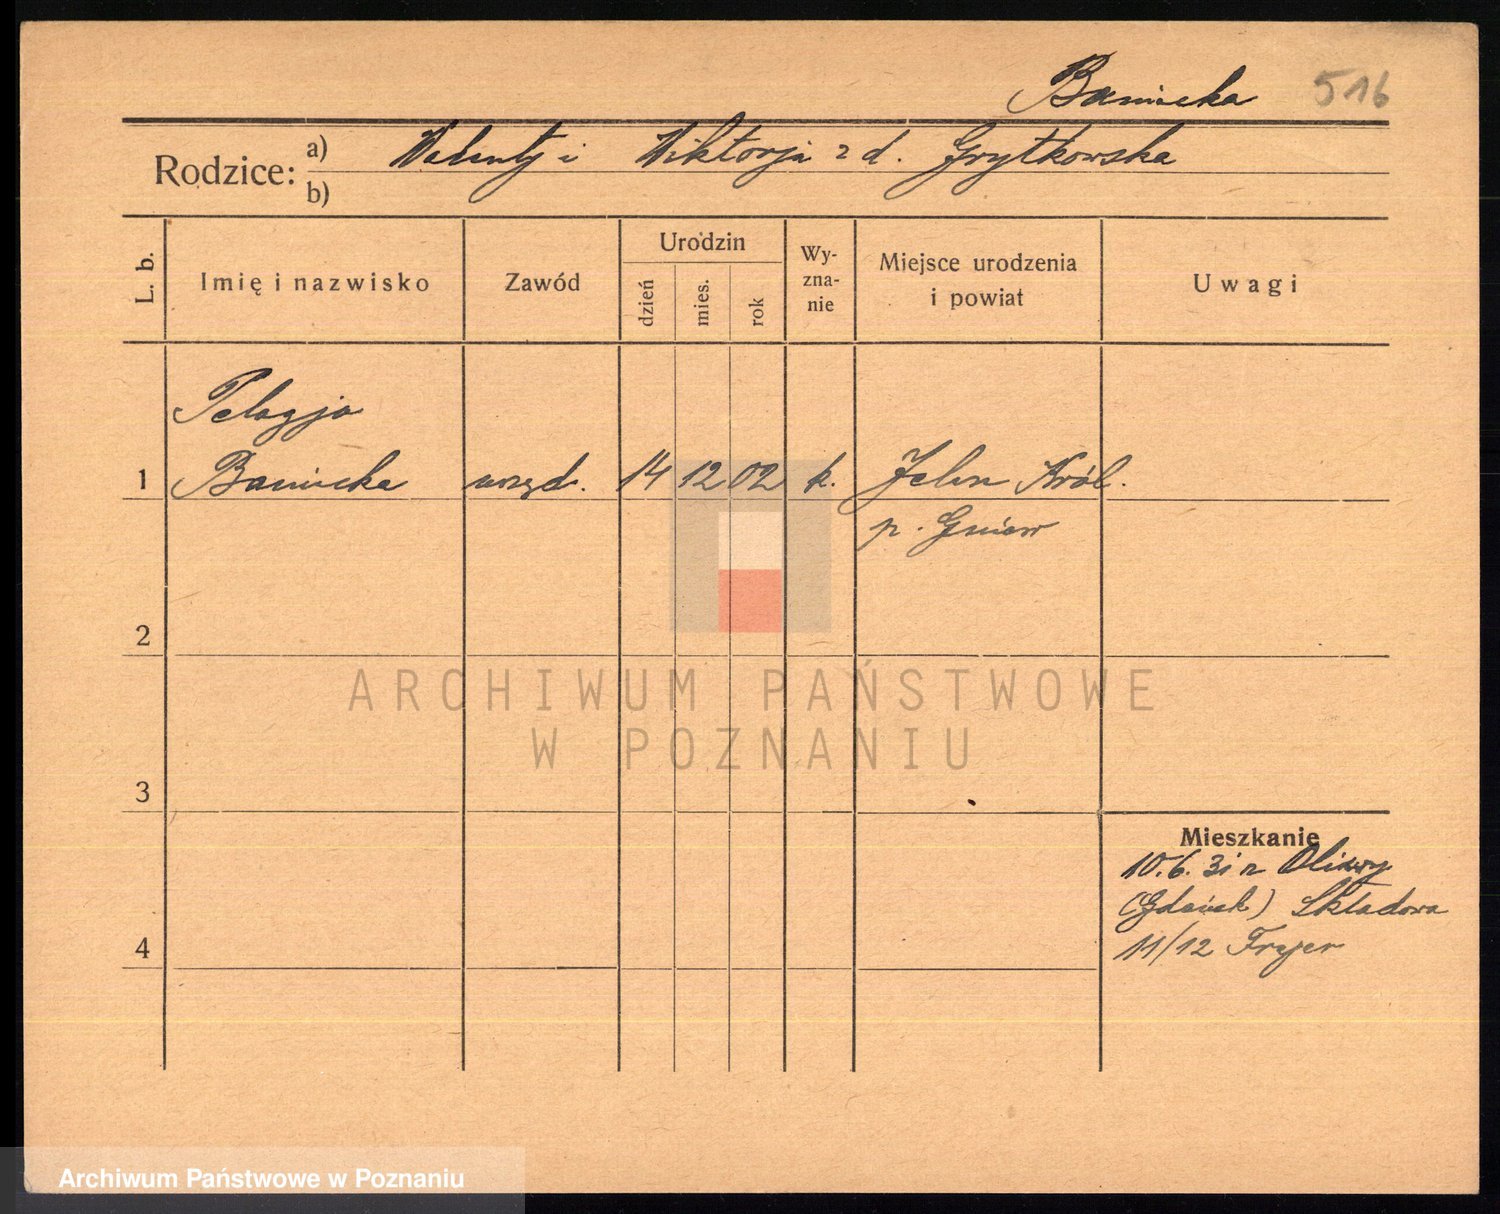 Banicka 516
Rodzice: a) Walenty i Wiktorja z d. Grytkowska
b)
L. b. Imię i nazwisko Zawód Urodzin dzień mies. rok Wy-zna-nie Miejsce urodzenia i powiat Uwagi
Pelagja
1 Banicka urzęd. 14 12 02 k. Król.
p. Gniew
2
ARCHIWUM PAŃSTWOWE
W POZNANIU
3
Mieszkanie
10.6.31 z Oliwy
(Gdańsk) Składowa
4 11/12 Frejer
Archiwum Państwowe w Poznaniu